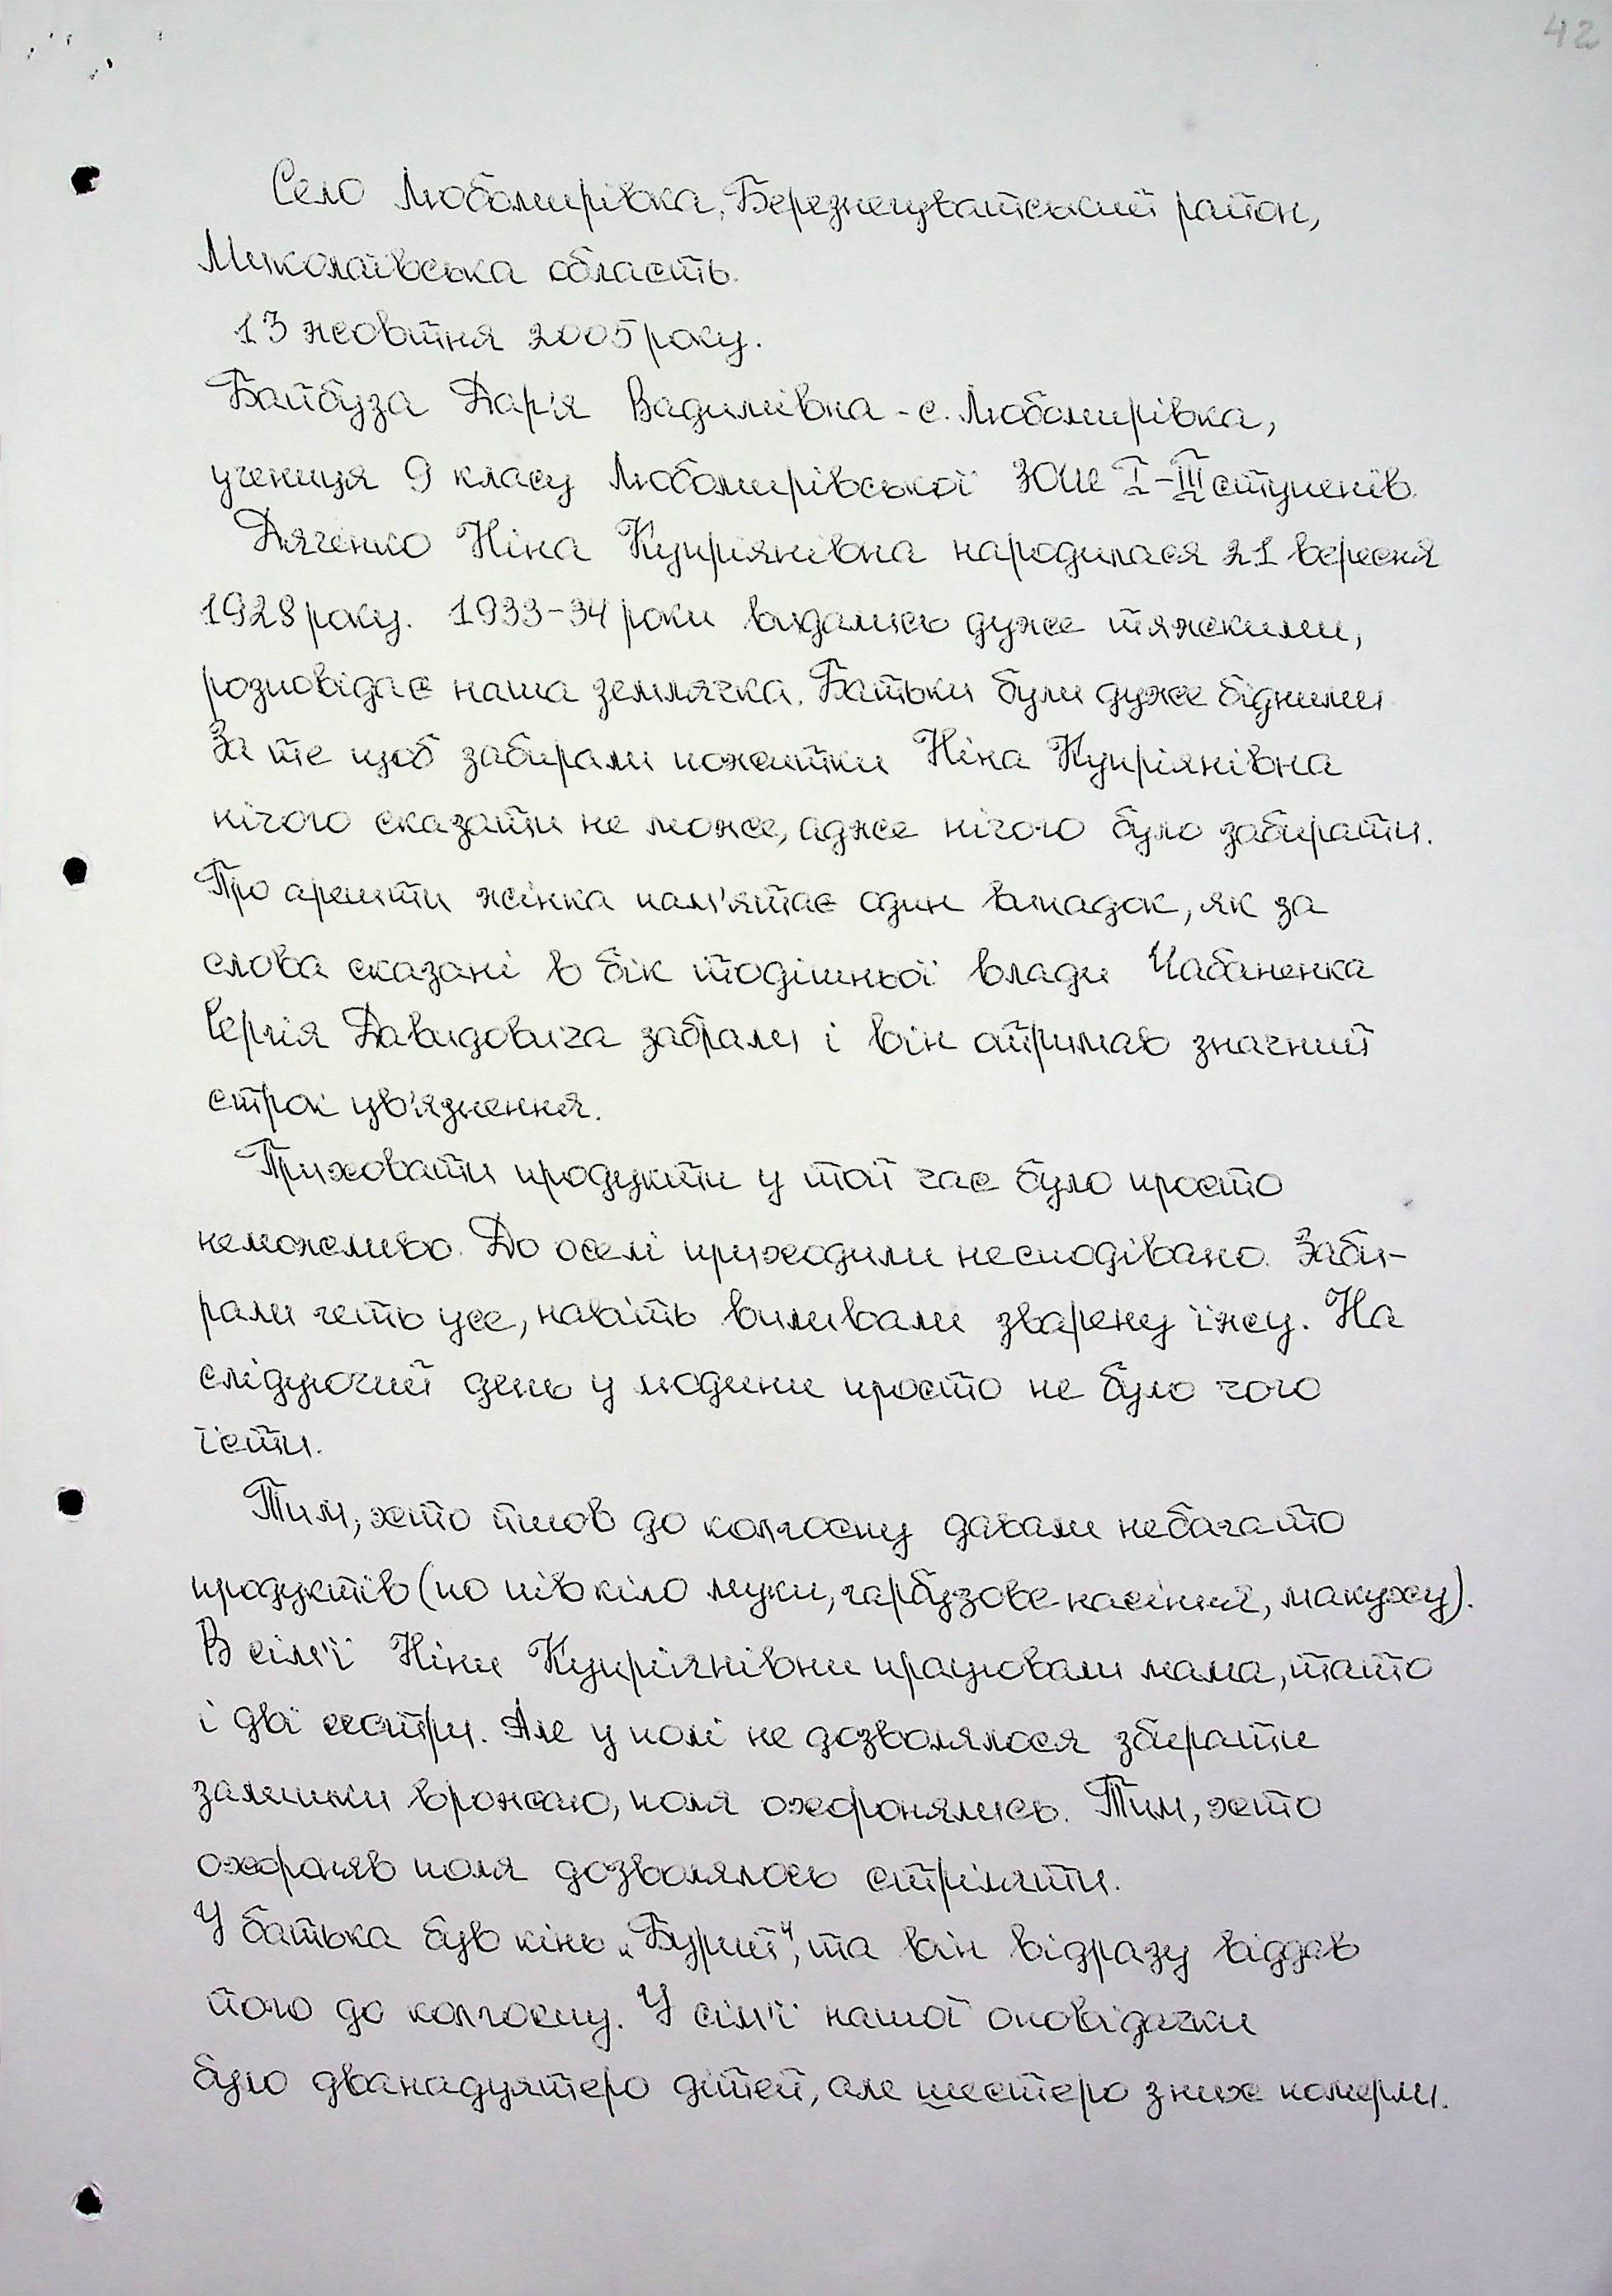 42
Село Любомирівка, Березнегуватський район,
Миколаївська область.
13 жовтня 2005 року.
Байбуза Дар'я Вадимівна - с. Любомирівка,
учениця 9 класу Любомирівської ЗОШ I-III ступенів.
Дяченко Ніна Купріянівна народилася 21 вересня
1928 року. 1933-34 роки видались дуже тяжкими,
розповідає наша землячка. Батьки були дуже бідними
За те щоб забирали пожитки Ніна Купріянівна
нічого сказати не може, адже нічого було забирати.
Про арешти жінка пам'ятає один випадок, як за
слова сказані в бік тодішньої влади Чабаненка
Сергія Давидовича забрали і він отримав значний
строк ув'язнення.
Приховати продукти у той час було просто
неможливо. До оселі приходили несподівано. Заби-
рали геть усе, навіть виливали зварену їжу. На
слідуючий день у людини просто не було чого
їсти.
Тим, хто пішов до колгоспу давали небагато
продуктів (по пів кіло муки, гарбузове насіння, макуху).
В сім'ї Ніни Купріянівни працювали мама, тато
і дві сестри. Але у полі не дозволялося збирати
залишки врожаю, поля охоронялись. Тим, хто
охороняв поля дозволялось стріляти.
У батька був кінь „Бурий", та він відразу віддав
його до колгоспу. У сім'ї нашої оповідачки
було дванадцятеро дітей, але шестеро з них померли.